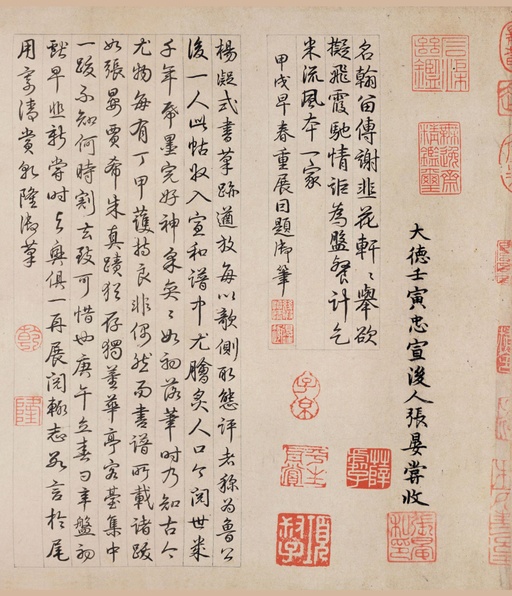 大德壬寅忠宣後人張晏嘗收
名翰留傳謝韭花軒〻舉欲
擬飛霞馳情詎為盤餐計乞
米流風本一家
甲戌早春重展因題御筆
楊凝式書草跡遒放每以欹側取態評者稱為魯公
後一人此帖收入宣和譜中尤膾炙人口今閱世幾
千年帋墨完好神采奕〻如初落筆時乃知古今
尤物每有丁甲護持良非偶然而書譜所載諸跋
如張晏賈希朱真蹟猶存獨董華亭容臺集中
一跋不知何時割去致可惜也庚午立春日辛盤初
獻早韭新嘗時與興俱一再展閱輒志數言於尾
用寄清賞乾隆御筆
無逸齋精鑑璽
子京
項叔子
乾
隆